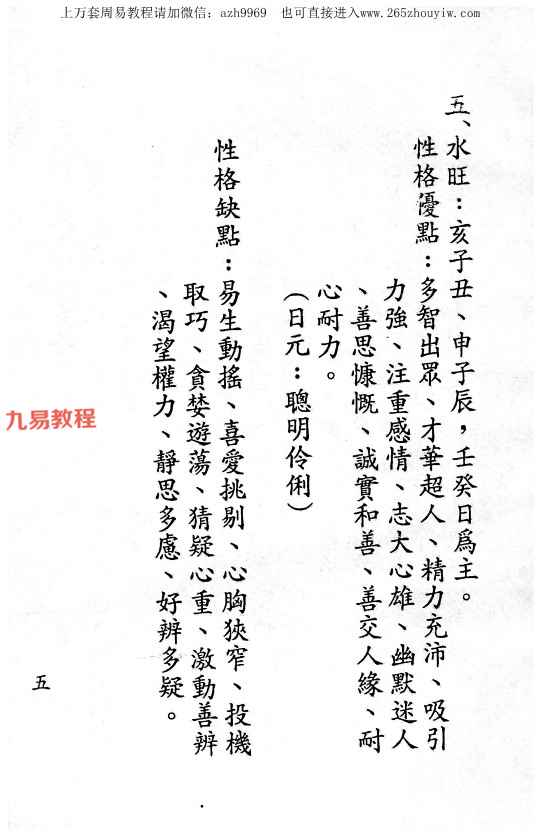 上万套周易教程请加微信：azh9969　也可直接进入www.265zhouyiw.com
五、水旺：亥子丑、申子辰，壬癸日爲主。
性格優點：多智出眾、才華超人、精力充沛、吸引
力強、注重感情、志大心雄、幽默迷人
、善思慷慨、誠實和善、善交人緣、耐
心耐力。
（日元：聰明伶俐）
性格缺點：易生動搖、喜愛挑剔、心胸狹窄、投機
取巧、貪婪遊蕩、猜疑心重、激動善辨
、渴望權力、靜思多慮、好辨多疑。
九易教程
五